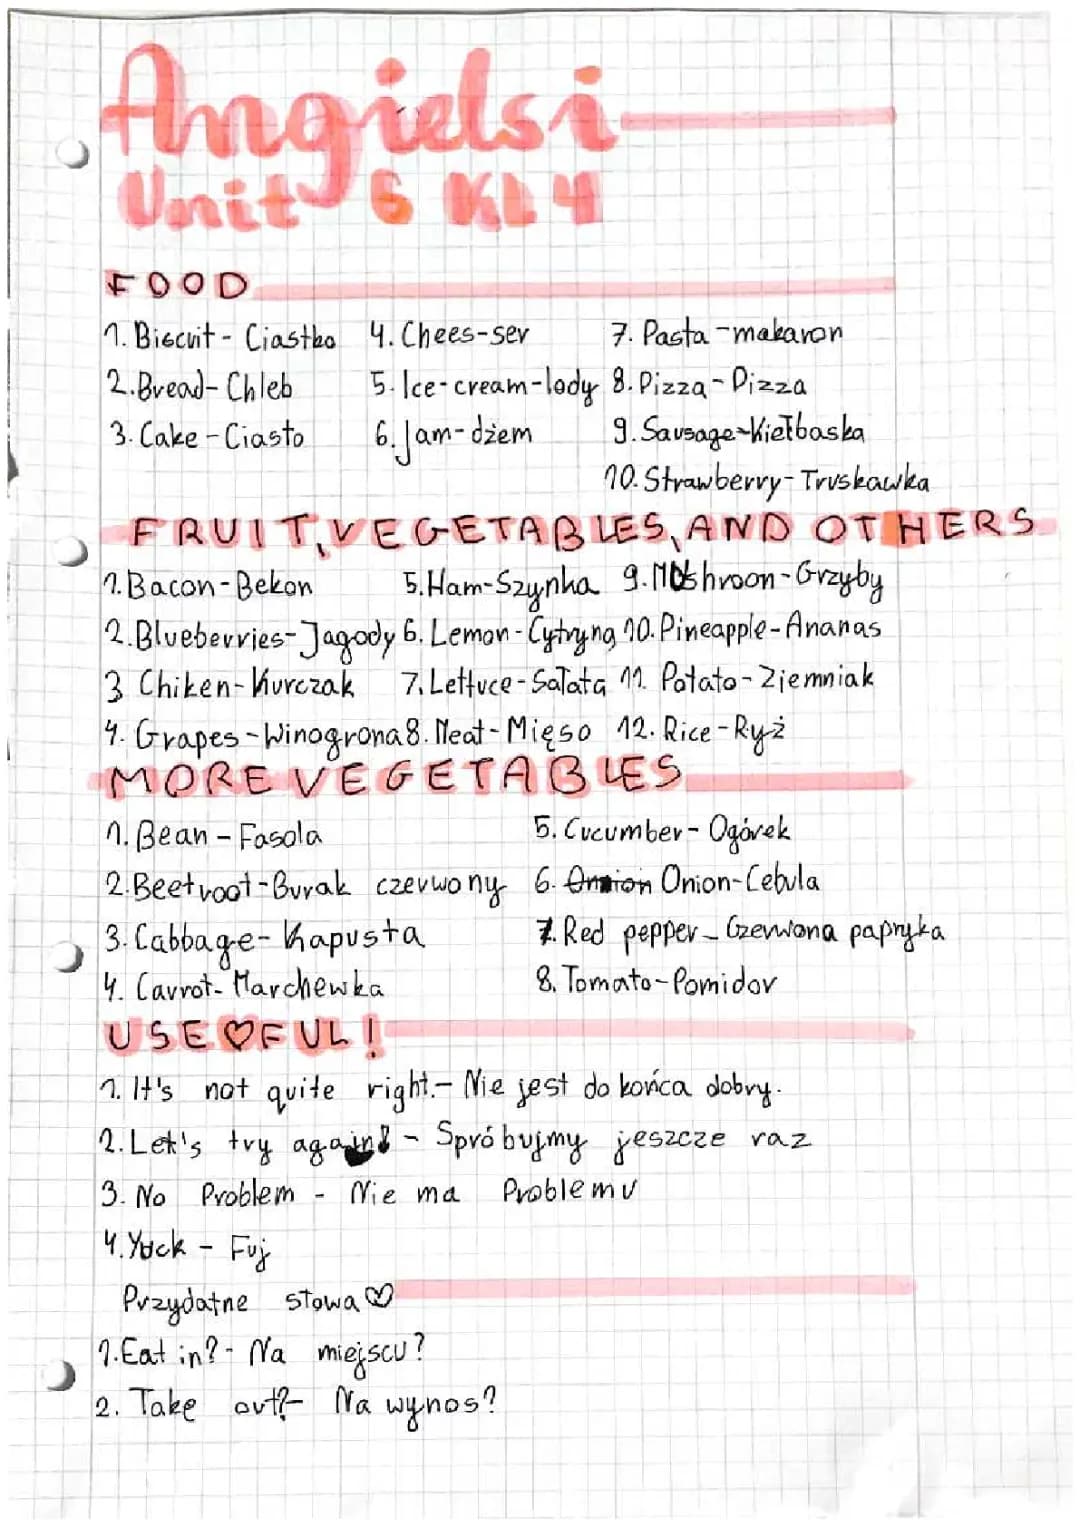 Angielsi
Unit 6 KL 4
FOOD
1. Biscuit - Ciastko 4. Chees-ser 7. Pasta - makaron
2. Bread - Chleb 5. Ice-cream-lody 8. Pizza - Pizza
3. Cake - Ciasto 6. Jam - dżem 9. Sausage-Kiełbaska
10. Strawberry - Truskawka
FRUIT, VEGETABLES, AND OTHERS
1. Bacon - Bekon 5. Ham-Szynka 9. Mushroon - Grzyby
2. Blueberries - Jagody 6. Lemon - Cytryna 10. Pineapple - Ananas
3 Chiken - Kurczak 7. Lettuce - Sałata 11. Potato - Ziemniak
4. Grapes - Winogrona 8. Meat - Mięso 12. Rice - Ryż
MORE VEGETABLES
1. Bean - Fasola 5. Cucumber - Ogórek
2. Beetroot - Burak czerwony 6. Onion-Cebula
3. Cabbage - Kapusta 7. Red pepper - Czerwona papryka
4. Carrot - Marchewka 8. Tomato - Pomidor
USE♡FUL!
1. It's not quite right. - Nie jest do końca dobry.
2. Let's try again! - Spróbujmy jeszcze raz
3. No Problem - Nie ma Problemu
4. Yuck - Fuj
Przydatne słowa ♡
1. Eat in? - Na miejscu?
2. Take out? - Na wynos?